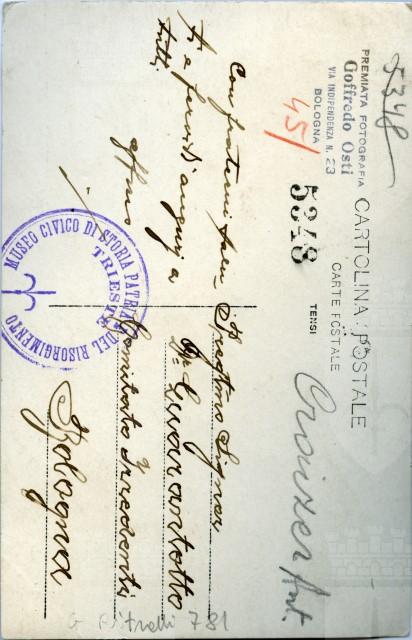 5348
PREMIATA FOTOGRAFIA
Goffredo Osti
VIA INDIPENDENZA N. 23
BOLOGNA
45/
CARTOLINA POSTALE
CARTE POSTALE
5348
TENSI
Croizer Ant.
Con fraterni
e fervidi auguri a
tutti
affmo
Signor
Dr Guarantotto
Comitato Irredenti
Bologna
MUSEO CIVICO DI STORIA PATRIA
DEL RISORGIMENTO
TRIESTE
781